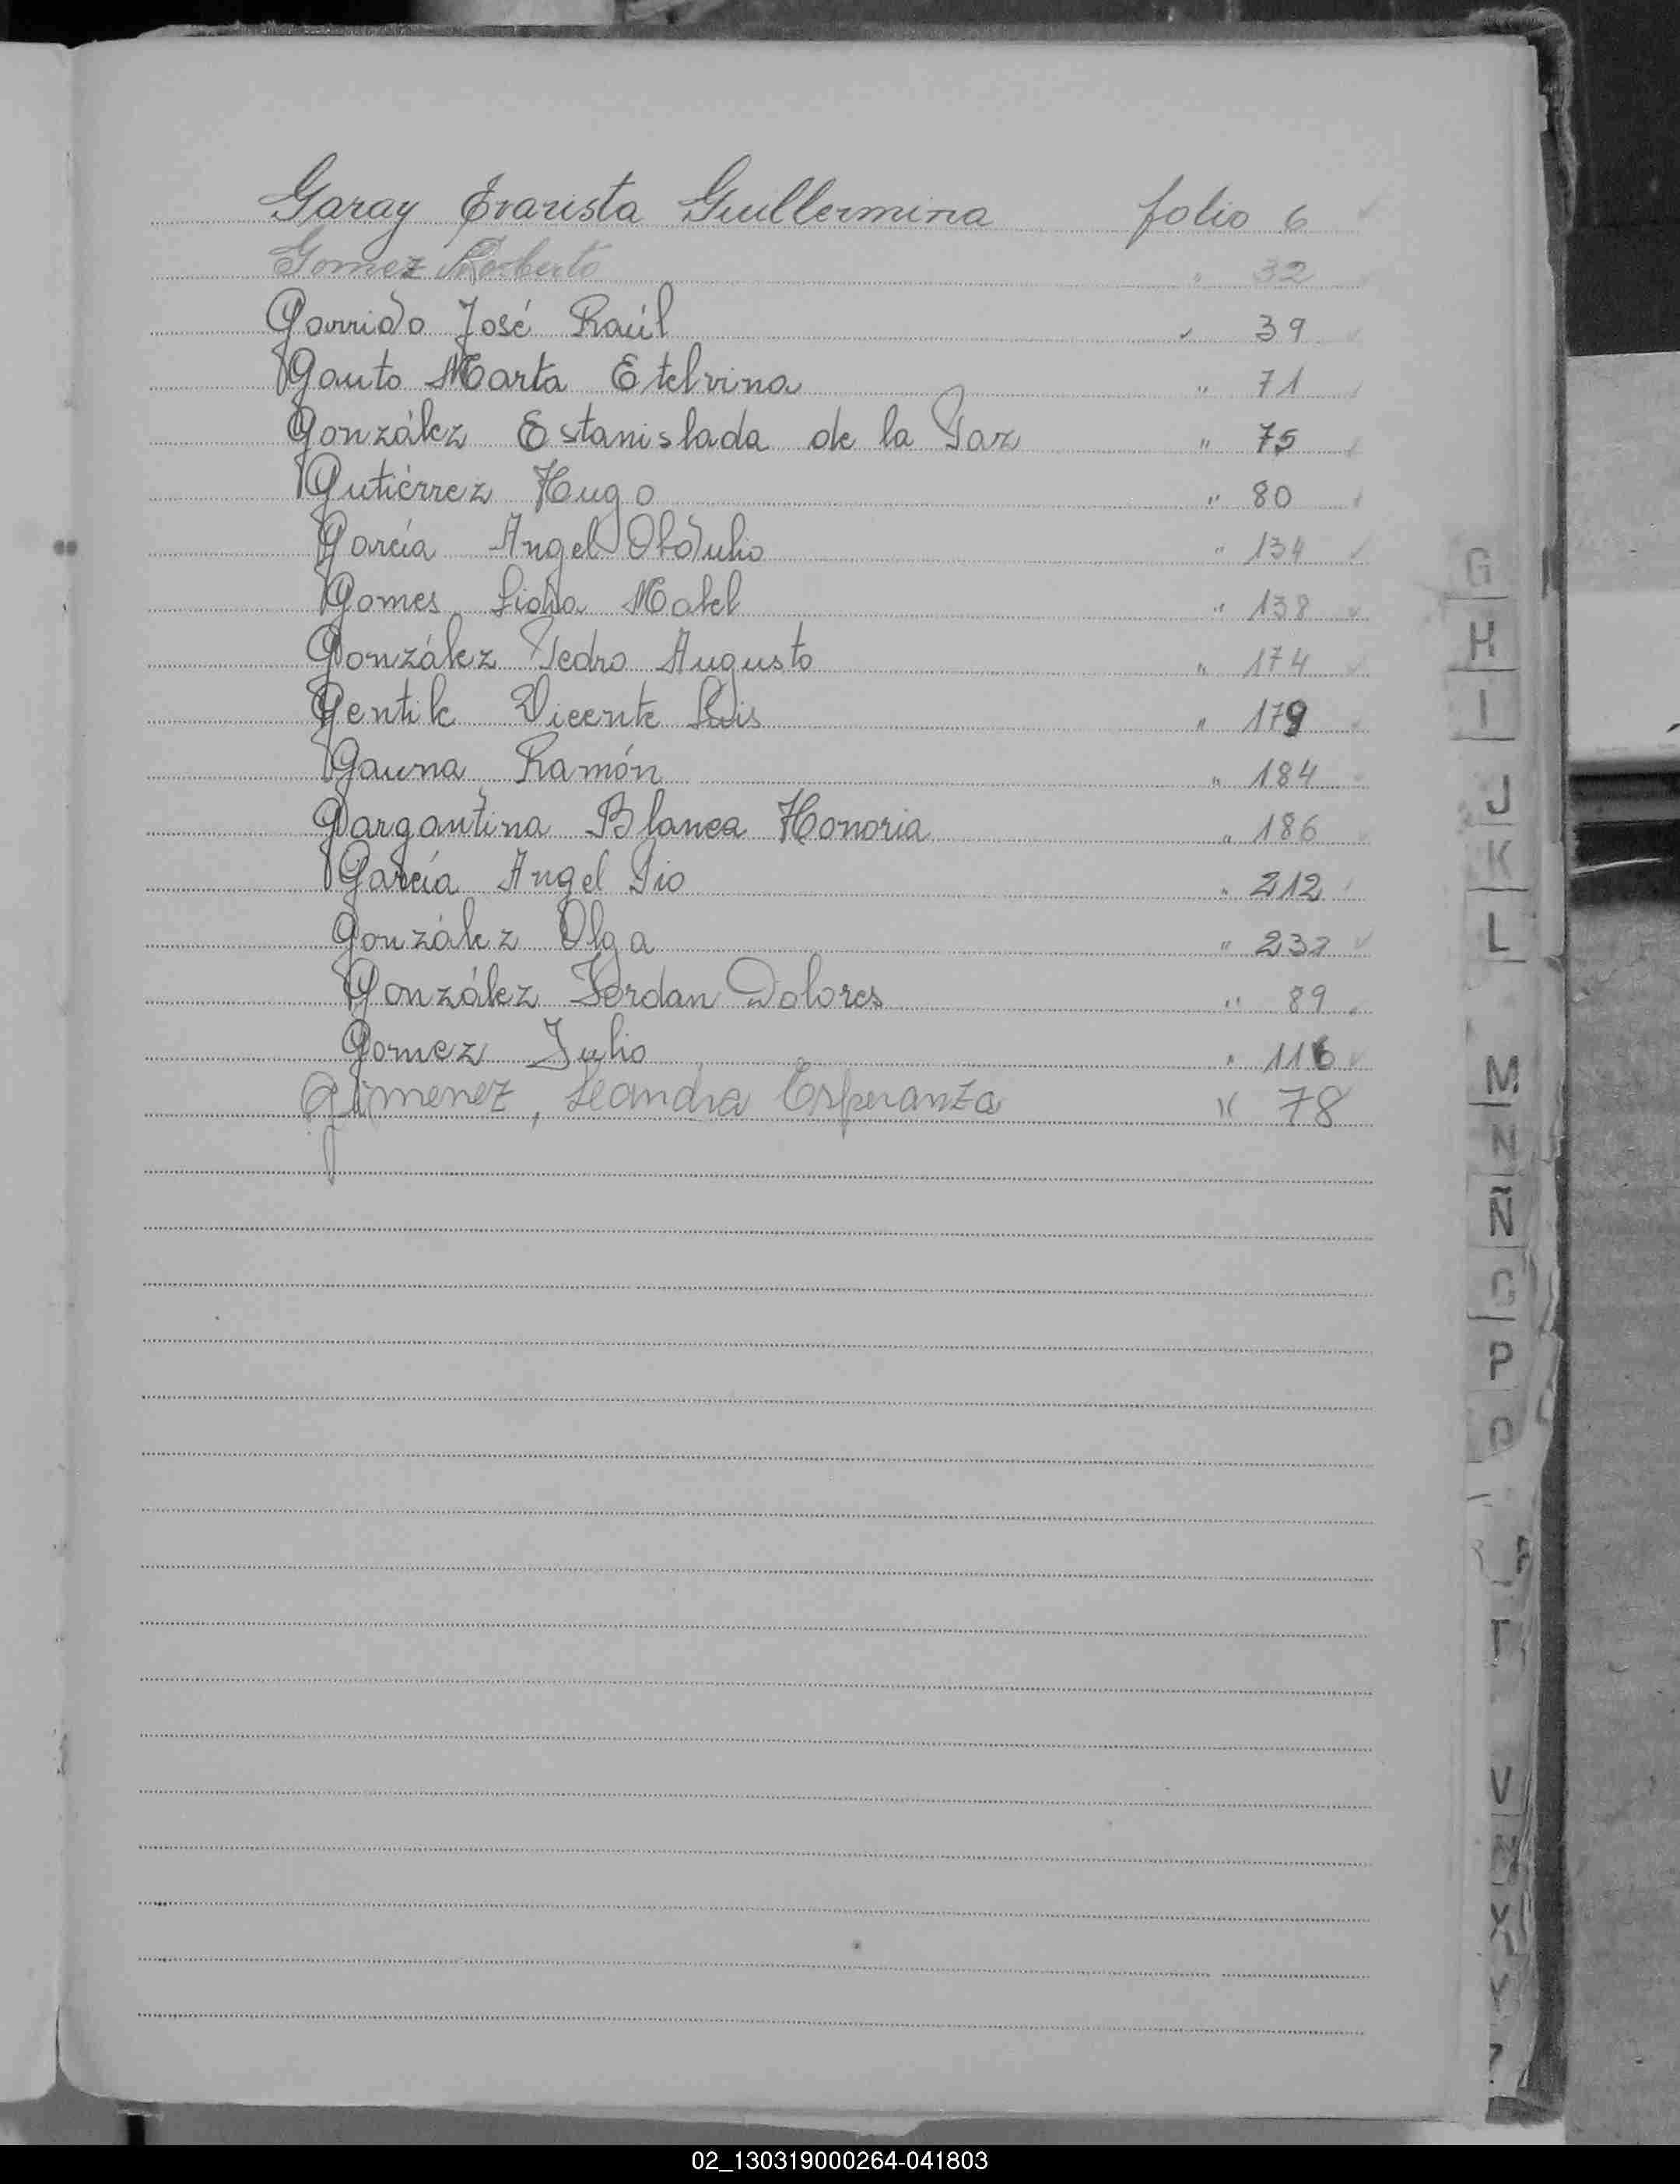 Garay Evarista Guillermina folio 6
Gomez Roberto " 32
Garrido José Raúl " 39
Gauto Marta Etelvina " 71
González Estanislada de la Paz " 75
Gutiérrez Hugo " 80
García Angel Obdulio " 134
Gomes Lidia Mabel " 138
González Pedro Augusto " 174
Gentile Vicente Luis " 179
Gauna Ramón " 184
Gargantina Blanca Honoria " 186
García Angel Pio " 212
González Olga " 232
González Jordan Dolores " 89
Gomez Julio " 116
Gimenez, Leandra Esperanza " 78
G
H
I
J
K
L
M
N
Ñ
O
P
Q
T
V
X
Y
Z
02_130319000264-041803